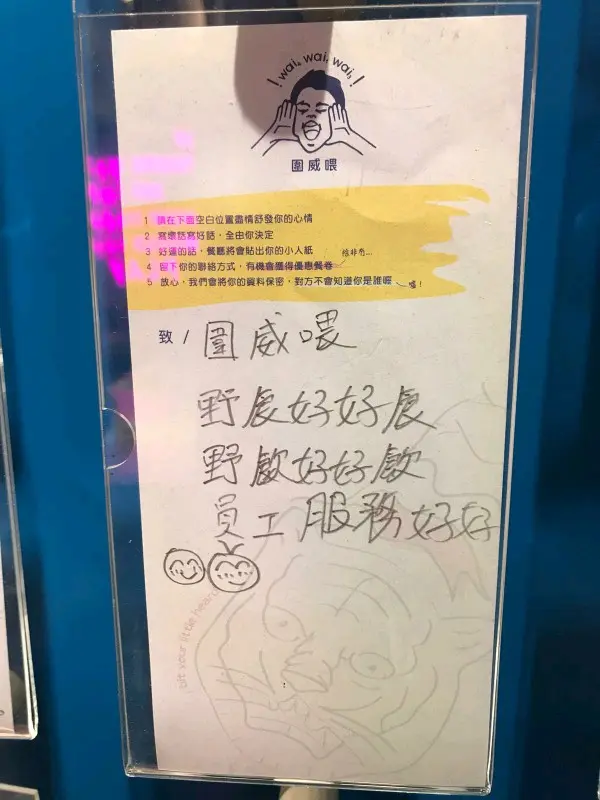 ! wai, wai, wai, !
圍威喂
1 請在下面空白位置盡情舒發你的心情
2 寫壞話寫好話，全由你決定
3 好運的話，餐廳將會貼出你的小人紙
4 留下你的聯絡方式，有機會獲得優惠餐卷
5 放心，我們會將你的資料保密，對方不會知道你是誰喔
除非冇...
嘻！
致 / 圍威喂
野食好好食
野飲好好飲
員工服務好好
your little heart